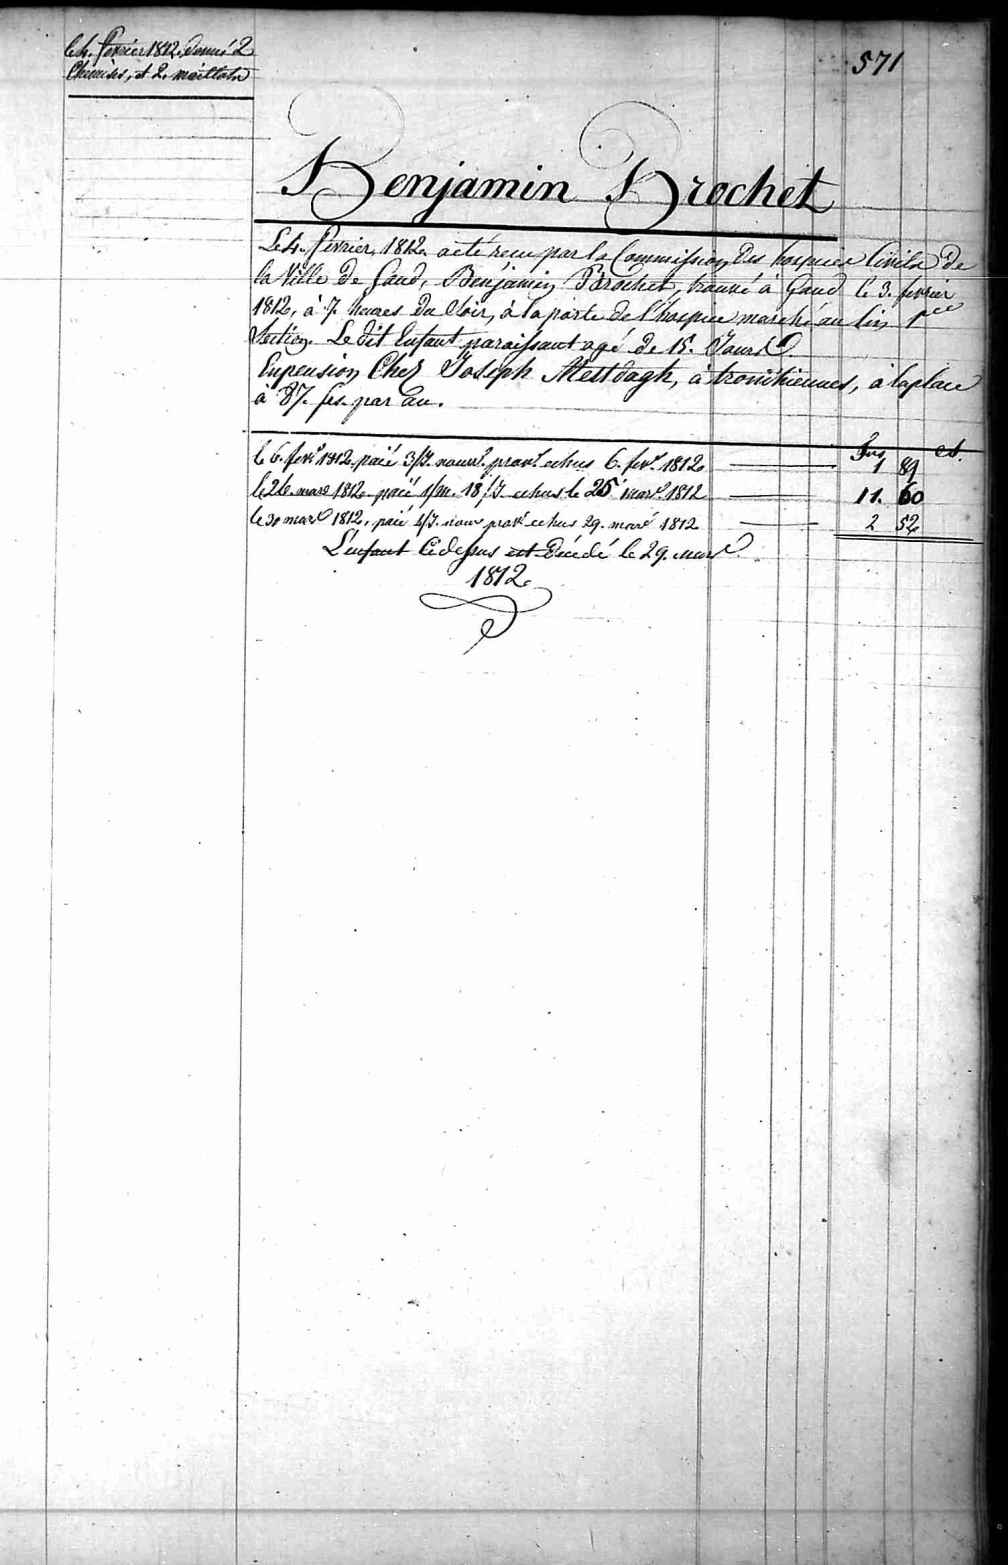 le 4. fevrier 1812. donné 2
Chemises, et 2. maillots
571
Benjamin Brochet
Le 4. fevrier, 1812. a été recu par la Commission des hospices Civils de
la Ville de Gand, Benjamin Brochet, trouvé à Gand le 3. fevrier
1812, à 7. heures du Soir, à la porte de l'hospice marché au lin 1.ere
Section. Le dit Enfant paraissant agé de 15. Jours.
En pension Chez Joseph Mestdagh, à tronchiennes, à la place
à 87. fs. par an.
frs ct.
le 6. fevr 1812. paié 3/J. nourr. prov. echus 6. fevr. 1812. 1 89
le 26. mars 1812. paié 1/m. 18/J. echus le 25 mars. 1812 11. 60
le 30 mars 1812, paié 4/J. nour prov. echus 29. mars 1812 2 52
L'enfant Cidessus est Décédé le 29. mars
1812.